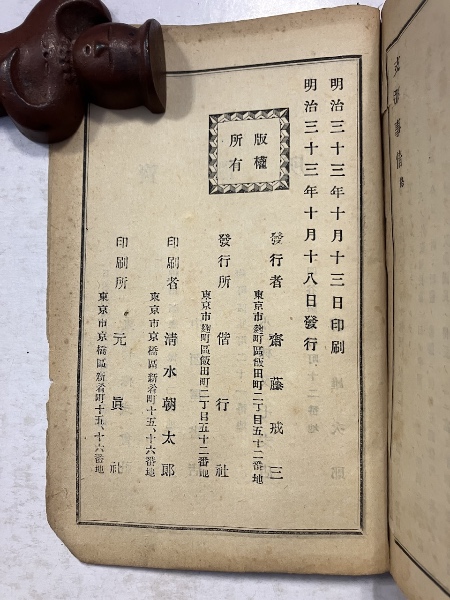 明治三十三年十月十三日印刷
明治三十三年十月十八日發行
版權
所有
發行者 齋藤戒三
東京市麴町區飯田町二丁目五十二番地
發行所 偕行社
東京市麴町區飯田町二丁目五十二番地
印刷者 清水朝太郎
東京市京橋區新肴町十五、十六番地
印刷所 元眞社
東京市京橋區新肴町十五、十六番地